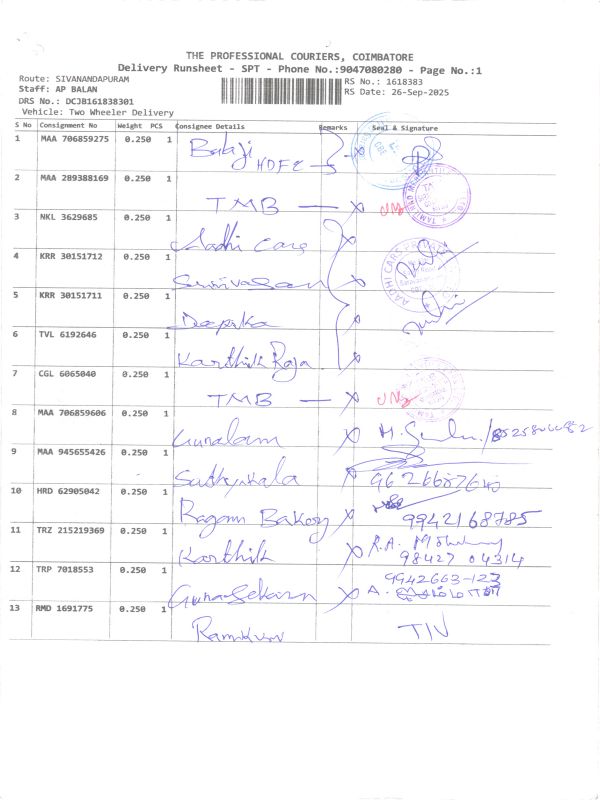 THE PROFESSIONAL COURIERS, COIMBATORE
Delivery Runsheet - SPT - Phone No.:9047080280 - Page No.:1
Route: SIVANANDAPURAM RS No.: 1618383
Staff: AP BALAN RS Date: 26-Sep-2025
DRS No.: DCJB161838301
Vehicle: Two Wheeler Delivery
S No Consignment No Weight PCS Consignee Details Remarks Seal & Signature
1 MAA 706859275 0.250 1 Balaji HDFC
2 MAA 289388169 0.250 1 TMB
3 NKL 3629685 0.250 1 Aadhi Cars
4 KRR 30151712 0.250 1 Srinivasan
5 KRR 30151711 0.250 1 Deepika
6 TVL 6192646 0.250 1 Karthik Raja
7 CGL 6065040 0.250 1 TMB
8 MAA 706859606 0.250 1
9 MAA 945655426 0.250 1 Sathyakala 9626687640
10 HRD 62905042 0.250 1 Ragam Bakery 9942168785
11 TRZ 215219369 0.250 1 Karthik R.A. 98427 04314
12 TRP 7018553 0.250 1 Gunasekaran 9942663-123 A.
13 RMD 1691775 0.250 1 Ramkumar